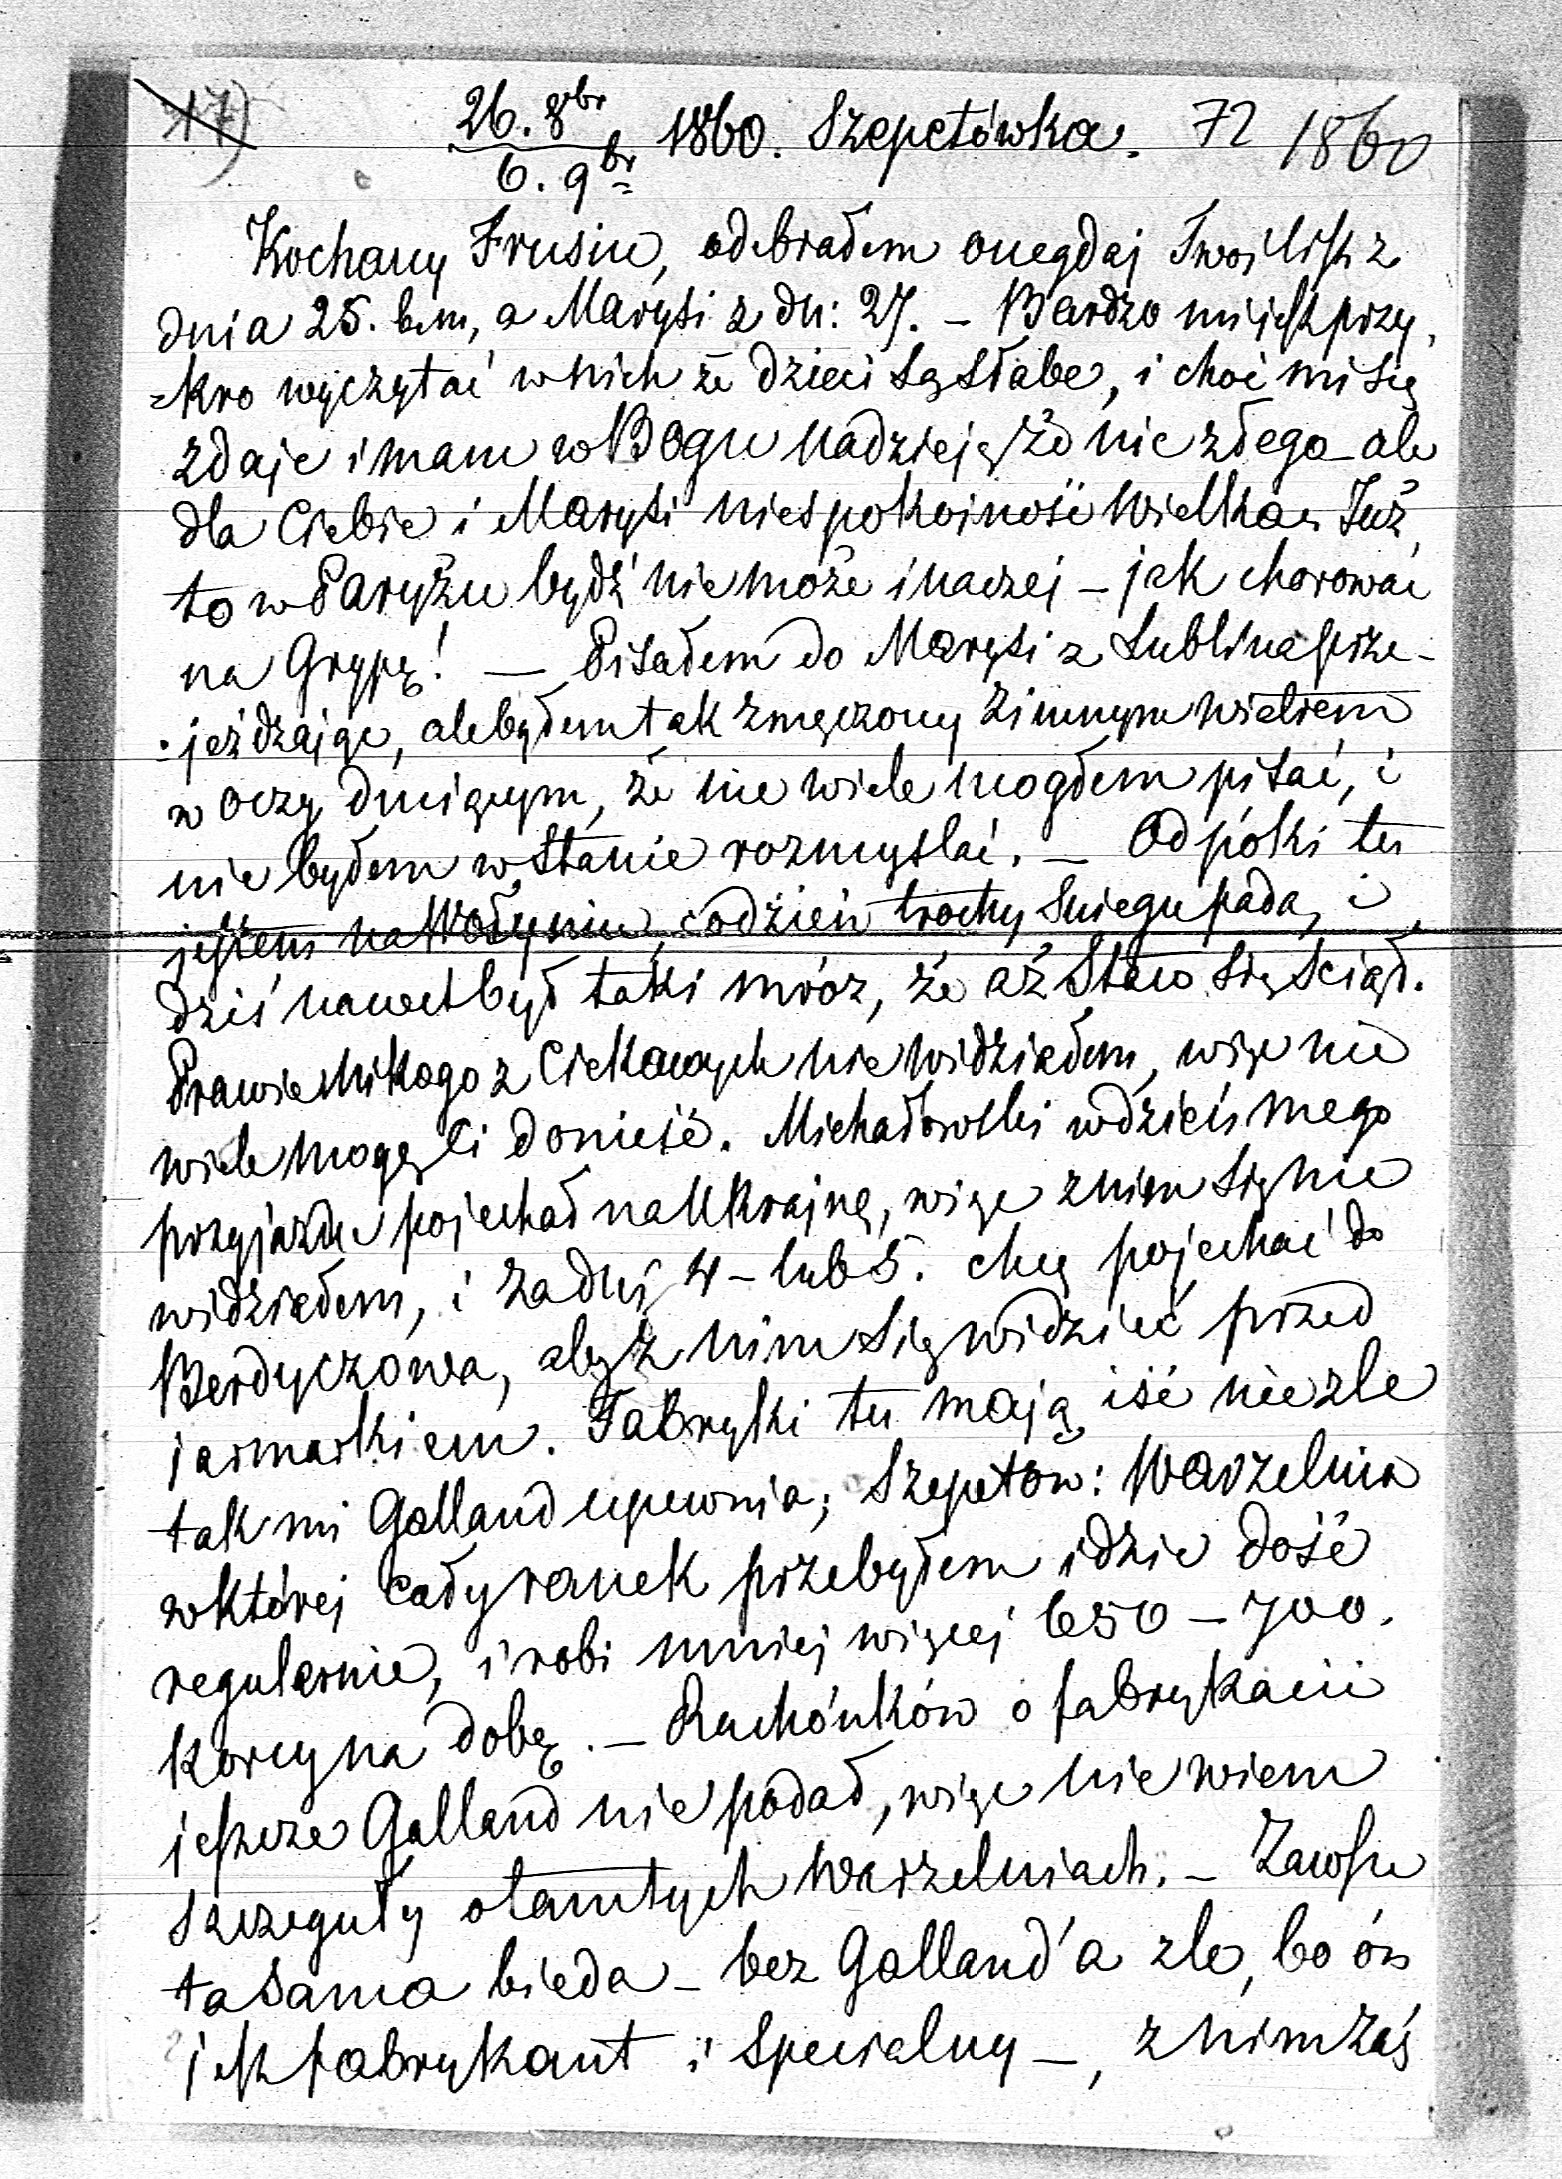 17)
26. 8br 1860. Szepetówka. 72 1860
6. 9br
Kochany Frusiu, odebrałem onegdaj Twój list z
dnia 25. b.m, a Marysi z dn: 27. – Bardzo mi jest przy
=kro wyczytać w nich że dzieci są słabe, i choć mi się
zdaje i mam w Bogu nadzieję że nic złego – ale
dla Ciebie i Marysi niespokojność wielka. Już
to w Paryżu bydź nie może inaczej – jak chorować
na Grypę! — Pisałem do Marysi z Lublina prze-
=jeżdżając, ale byłem tak zmęczony zimnym wiatrem
w oczy dmiącym, że nie wiele mogłem pisać, i
nie byłem w stanie rozmyslać. – Od póki tu
jestem na Wołyniu, codzień trochy sniegu pada, i
dziś nawet był taki mróz, że aż staw się sciął.
Prawie nikogo z Ciekawych nie widziałem, więc nie
wiele mogę Ci donieść. Michałowski w dzień mego
przyjazdu pojechał na Ukrainę, więc z nim się nie
widziałem, i za dni 4 – lub 5. chcę pojechać do
Berdyczowa, aby z nim się widzieć przed
jarmarkiem. Fabryki tu mają iść nie zle
tak mi Galland upewnia; Szepetow: Warzelnia
w której cały ranek przebyłem idzie dość
regularnie, i robi mniej więcej 650 – 700.
korcy na dobę. – Rachónków o fabrykacii
jeszcze Galland nie podał, więc nie wiem
szczeguły o tamtych warzelniach. – Zawsze
ta sama bieda – bez Galland'a zle, bo ón
jest fabrykant i specialny –, z nim zaś